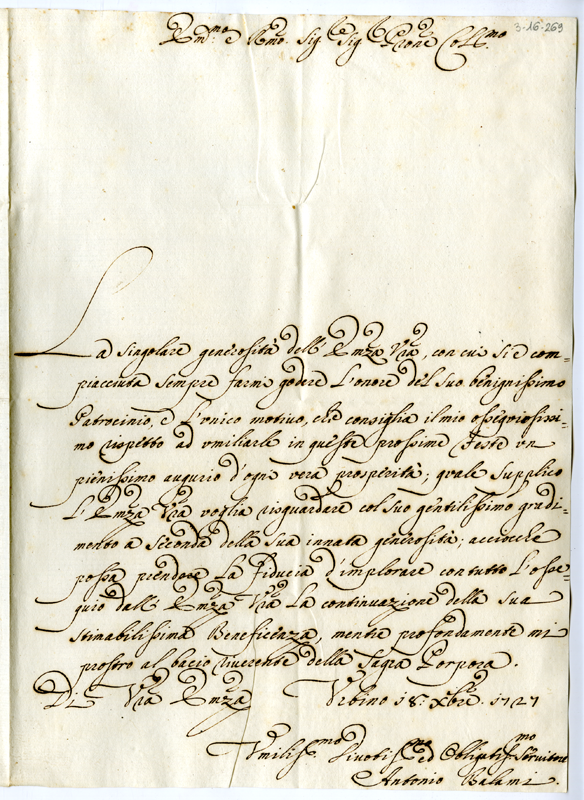 3-16-269
Em.mo e R.mo Sig.r Sig.r Prone Coll.mo
La singolare generosità dell'Emza Vra, con cui si è com-
piacciuta sempre farmi godere L'onore del suo benignissimo
Patrocinio, è L'unico motivo, che consiglia il mio ossequiosissi-
mo rispetto ad umiliarle in queste prossime Feste un
pienissimo augurio d'ogni vera prosperità; quale supplico
L'Emza Vra voglia risguardare col suo gentilissimo gradi-
mento a seconda della sua innata generosità; acciocche
possa prendere La fiducia d'implorare con tutto L'osse-
quio dall'Emza Vra La continuazione della sua
stimabilissima Beneficenza, mentre profondamente mi
prostro al bacio riverente della Sagra Porpora.
Di Vra Emza Urbino 18: Xbre 1727
Umiliss.mo Divotiss.mo ed Obligatiss.mo Servitore
Antonio Balami